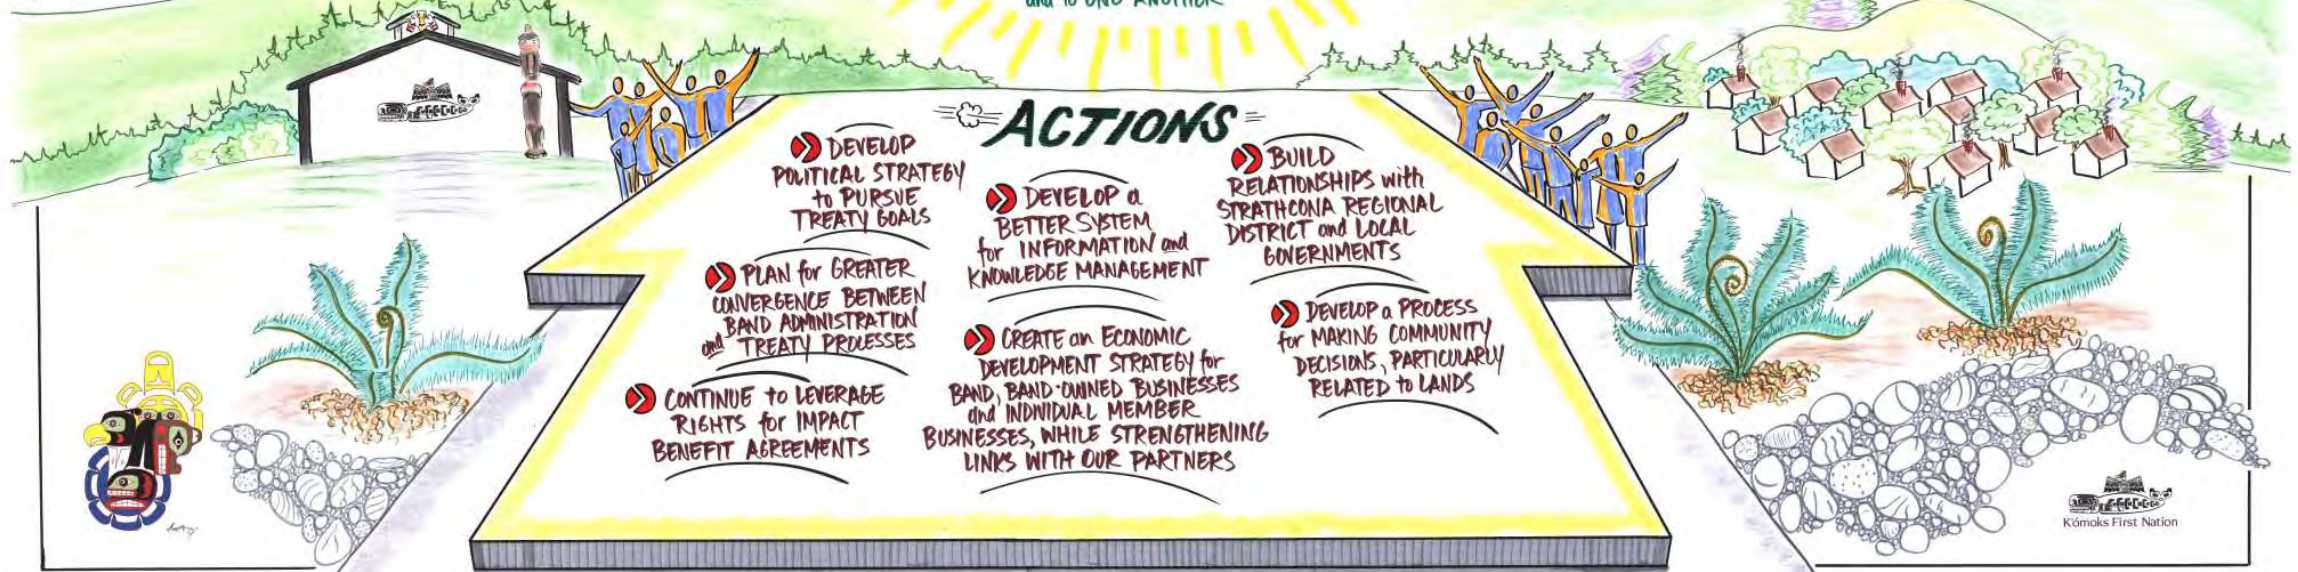 and to ONE ANOTHER
ACTIONS
DEVELOP
POLITICAL STRATEGY
to PURSUE
TREATY GOALS
PLAN for GREATER
CONVERGENCE BETWEEN
BAND ADMINISTRATION
and TREATY PROCESSES
CONTINUE to LEVERAGE
RIGHTS for IMPACT
BENEFIT AGREEMENTS
DEVELOP a
BETTER SYSTEM
for INFORMATION and
KNOWLEDGE MANAGEMENT
CREATE an ECONOMIC
DEVELOPMENT STRATEGY for
BAND, BAND-OWNED BUSINESSES
and INDIVIDUAL MEMBER
BUSINESSES, WHILE STRENGTHENING
LINKS WITH OUR PARTNERS
BUILD
RELATIONSHIPS with
STRATHCONA REGIONAL
DISTRICT and LOCAL
GOVERNMENTS
DEVELOP a PROCESS
for MAKING COMMUNITY
DECISIONS, PARTICULARLY
RELATED to LANDS
K'ómoks First Nation